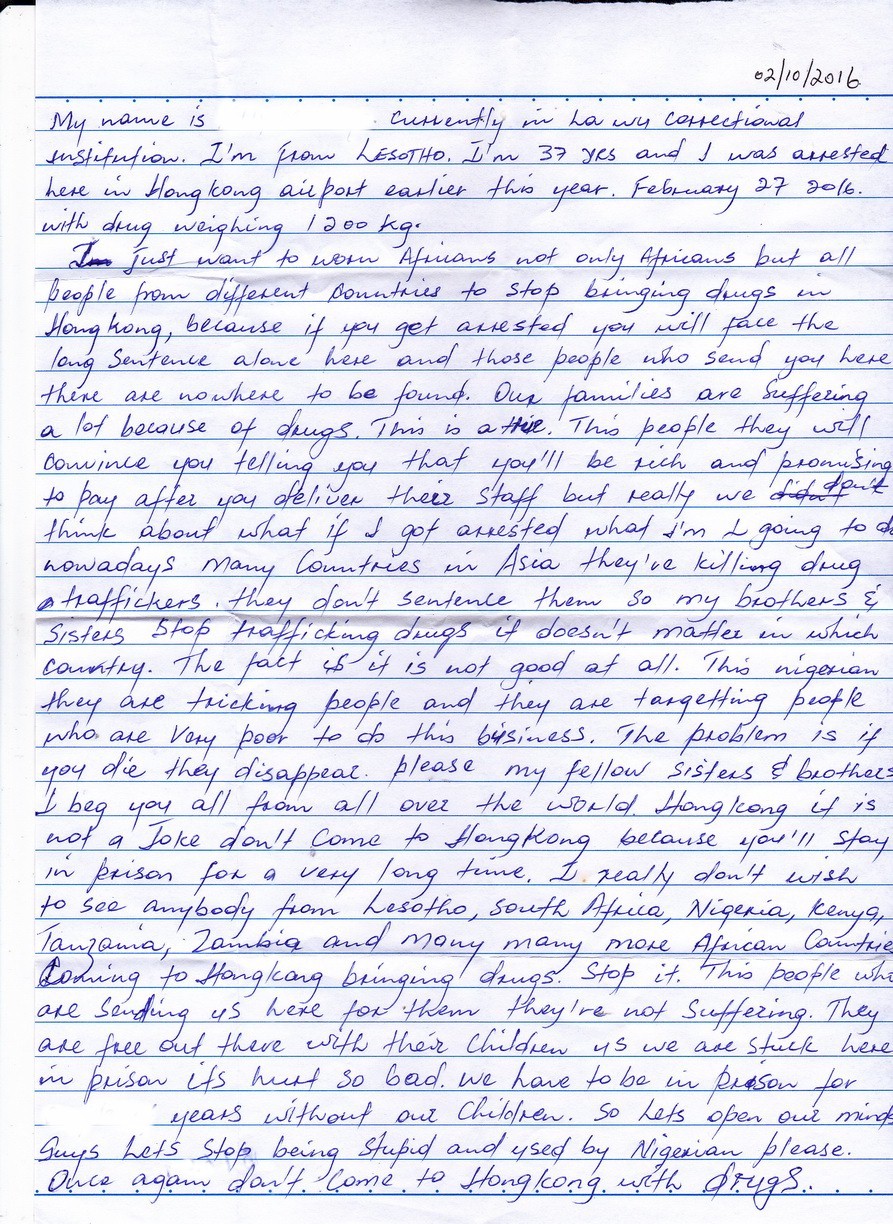 02/10/2016
My name is currently in La wu correctional
institution. I'm from LESOTHO. I'm 37 yrs and I was arrested
here in Hongkong airport earlier this year. February 27 2016.
with drug weighing 1200 kg.
Just want to worn Africans not only Africans but all
people from different Countries to stop bringing drugs in
Hongkong, because if you get arrested you will face the
long Sentence alone here and those people who send you here
there are nowhere to be found. Our families are Suffering
a lot because of drugs. This is a This people they will
Convince you telling you that you'll be rich and promising
to pay after you deliver their Staff but really we don't
think about what if I got arrested what I'm I going to do
nowadays many Countries in Asia they've killing drug
traffickers. they don't sentence them so my brothers &
Sisters Stop trafficking drugs it doesn't matter in which
country. The fact is it is not good at all. This nigerian
they are tricking people and they are targetting people
who are Very poor to do this business. The problem is if
you die they disappear. please my fellow Sisters & brothers
I beg you all from all over the world. Hongkong it is
not a Joke don't Come to Hongkong because you'll stay
in prison for a very long time. I really don't wish
to see anybody from Lesotho, South Africa, Nigeria, Kenya,
Tanzania, Zambia and Many many more African Countrie
Coming to Hongkong bringing drugs. Stop it. This people who
are Sending us here for them they're not Suffering. They
are free out there with their Children us we are stuck here
in prison its hurt so bad. we have to be in prison for
years without our Children. So Lets open our minds
Guys Lets Stop being Stupid and used by Nigerian please.
Once again don't Come to Hongkong with drugs.